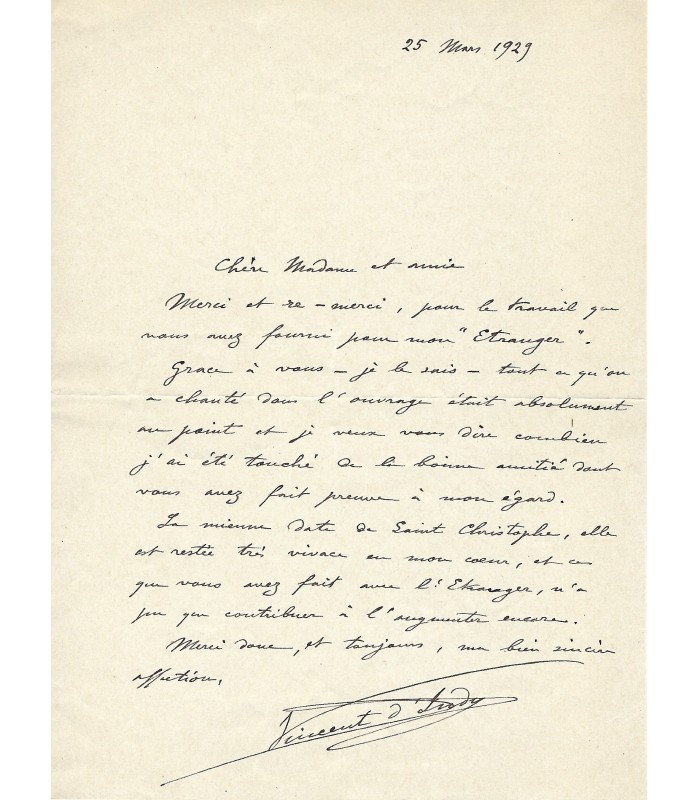 25 Mars 1929
Chère Madame et amie
Merci et re-merci, pour le travail que
vous avez fourni pour mon "Etranger".
Grace à vous - je le sais - tout ce qu'on
a chanté dans l'ouvrage était absolument
au point et je veux vous dire combien
j'ai été touché de la bonne amitié dont
vous avez fait preuve à mon égard.
La mienne date de Saint Christophe, elle
est restée très vivace en mon coeur, et ce
que vous avez fait avec l'Etranger, n'a
pu que contribuer à l'augmenter encore.
Merci donc, et toujours, ma bien sincère
affection,
Vincent d'Indy